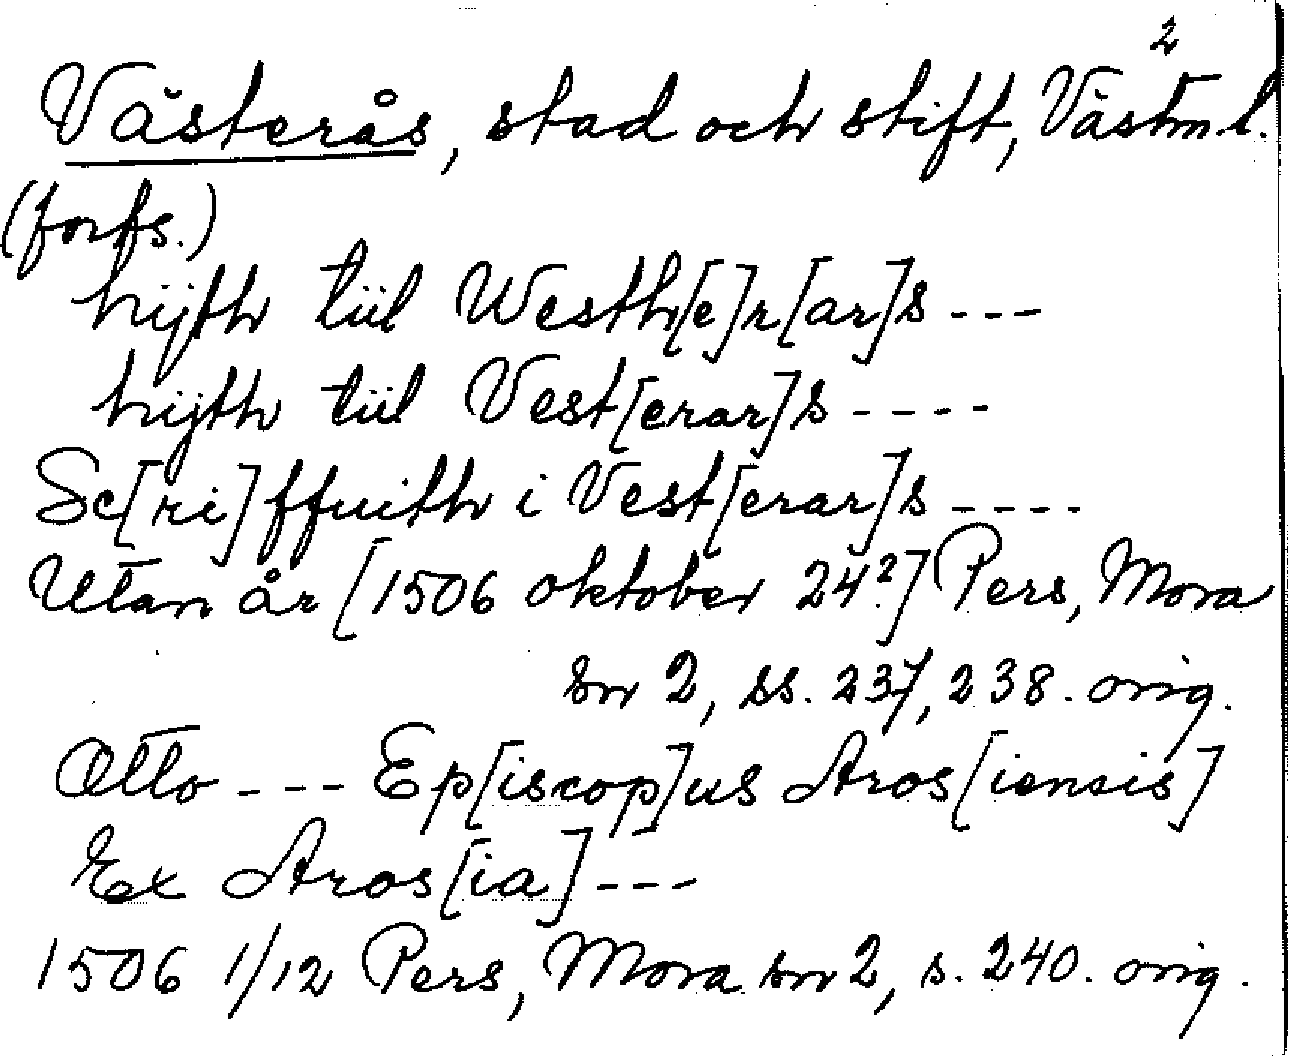 2
Västerås, stad och stift, Västml.
(forts.)
hijth tiil Westh[e]r[ar]s ---
hijth tiil Vest[erar]s ----
Sc[ri]ffuith i Vest[erar]s ----
Utan år [1506 oktober 24?] Pers, Mora
sn 2, ss. 237, 238. orig.
Otto --- Ep[iscop]us Aros[iensis]
Ex Aros[ia] ---
1506 1/12 Pers, Mora sn 2, s. 240. orig.